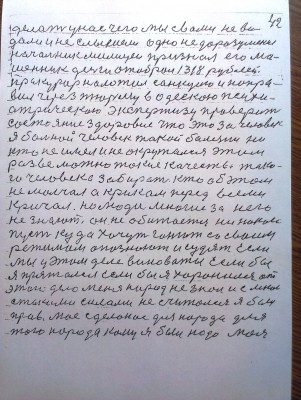 42
делат у нас чего мы с вами не ви-
дали и не слышем одно недоразумения
началник милиции признал его мо-
шенник денги отобрал 1318 рублей
пракурар наложил санкцию и направ-
вил через тюрму в одескою психи-
атрическою экспертизу проверит
состояние здоровие что это за человек
я больной человек такой болезни ни
кто не имел и не окружался этим
разве можно такие качества тако-
го человека забират кто об этом
не молчал а криком перед всеми
кричал. но люди многие за него
не знают. он не обитаетса ни на кого
пуст куда хочут гонют со своим
режимам опознают и судят если
мы у этом деле виноваты если бы
я прятался если бы я хоронился от
этого дело меня народ не знал и с мною
старыми силами не считался я был
прав. мое сделоное для народа для
того народа кому я был надо моя